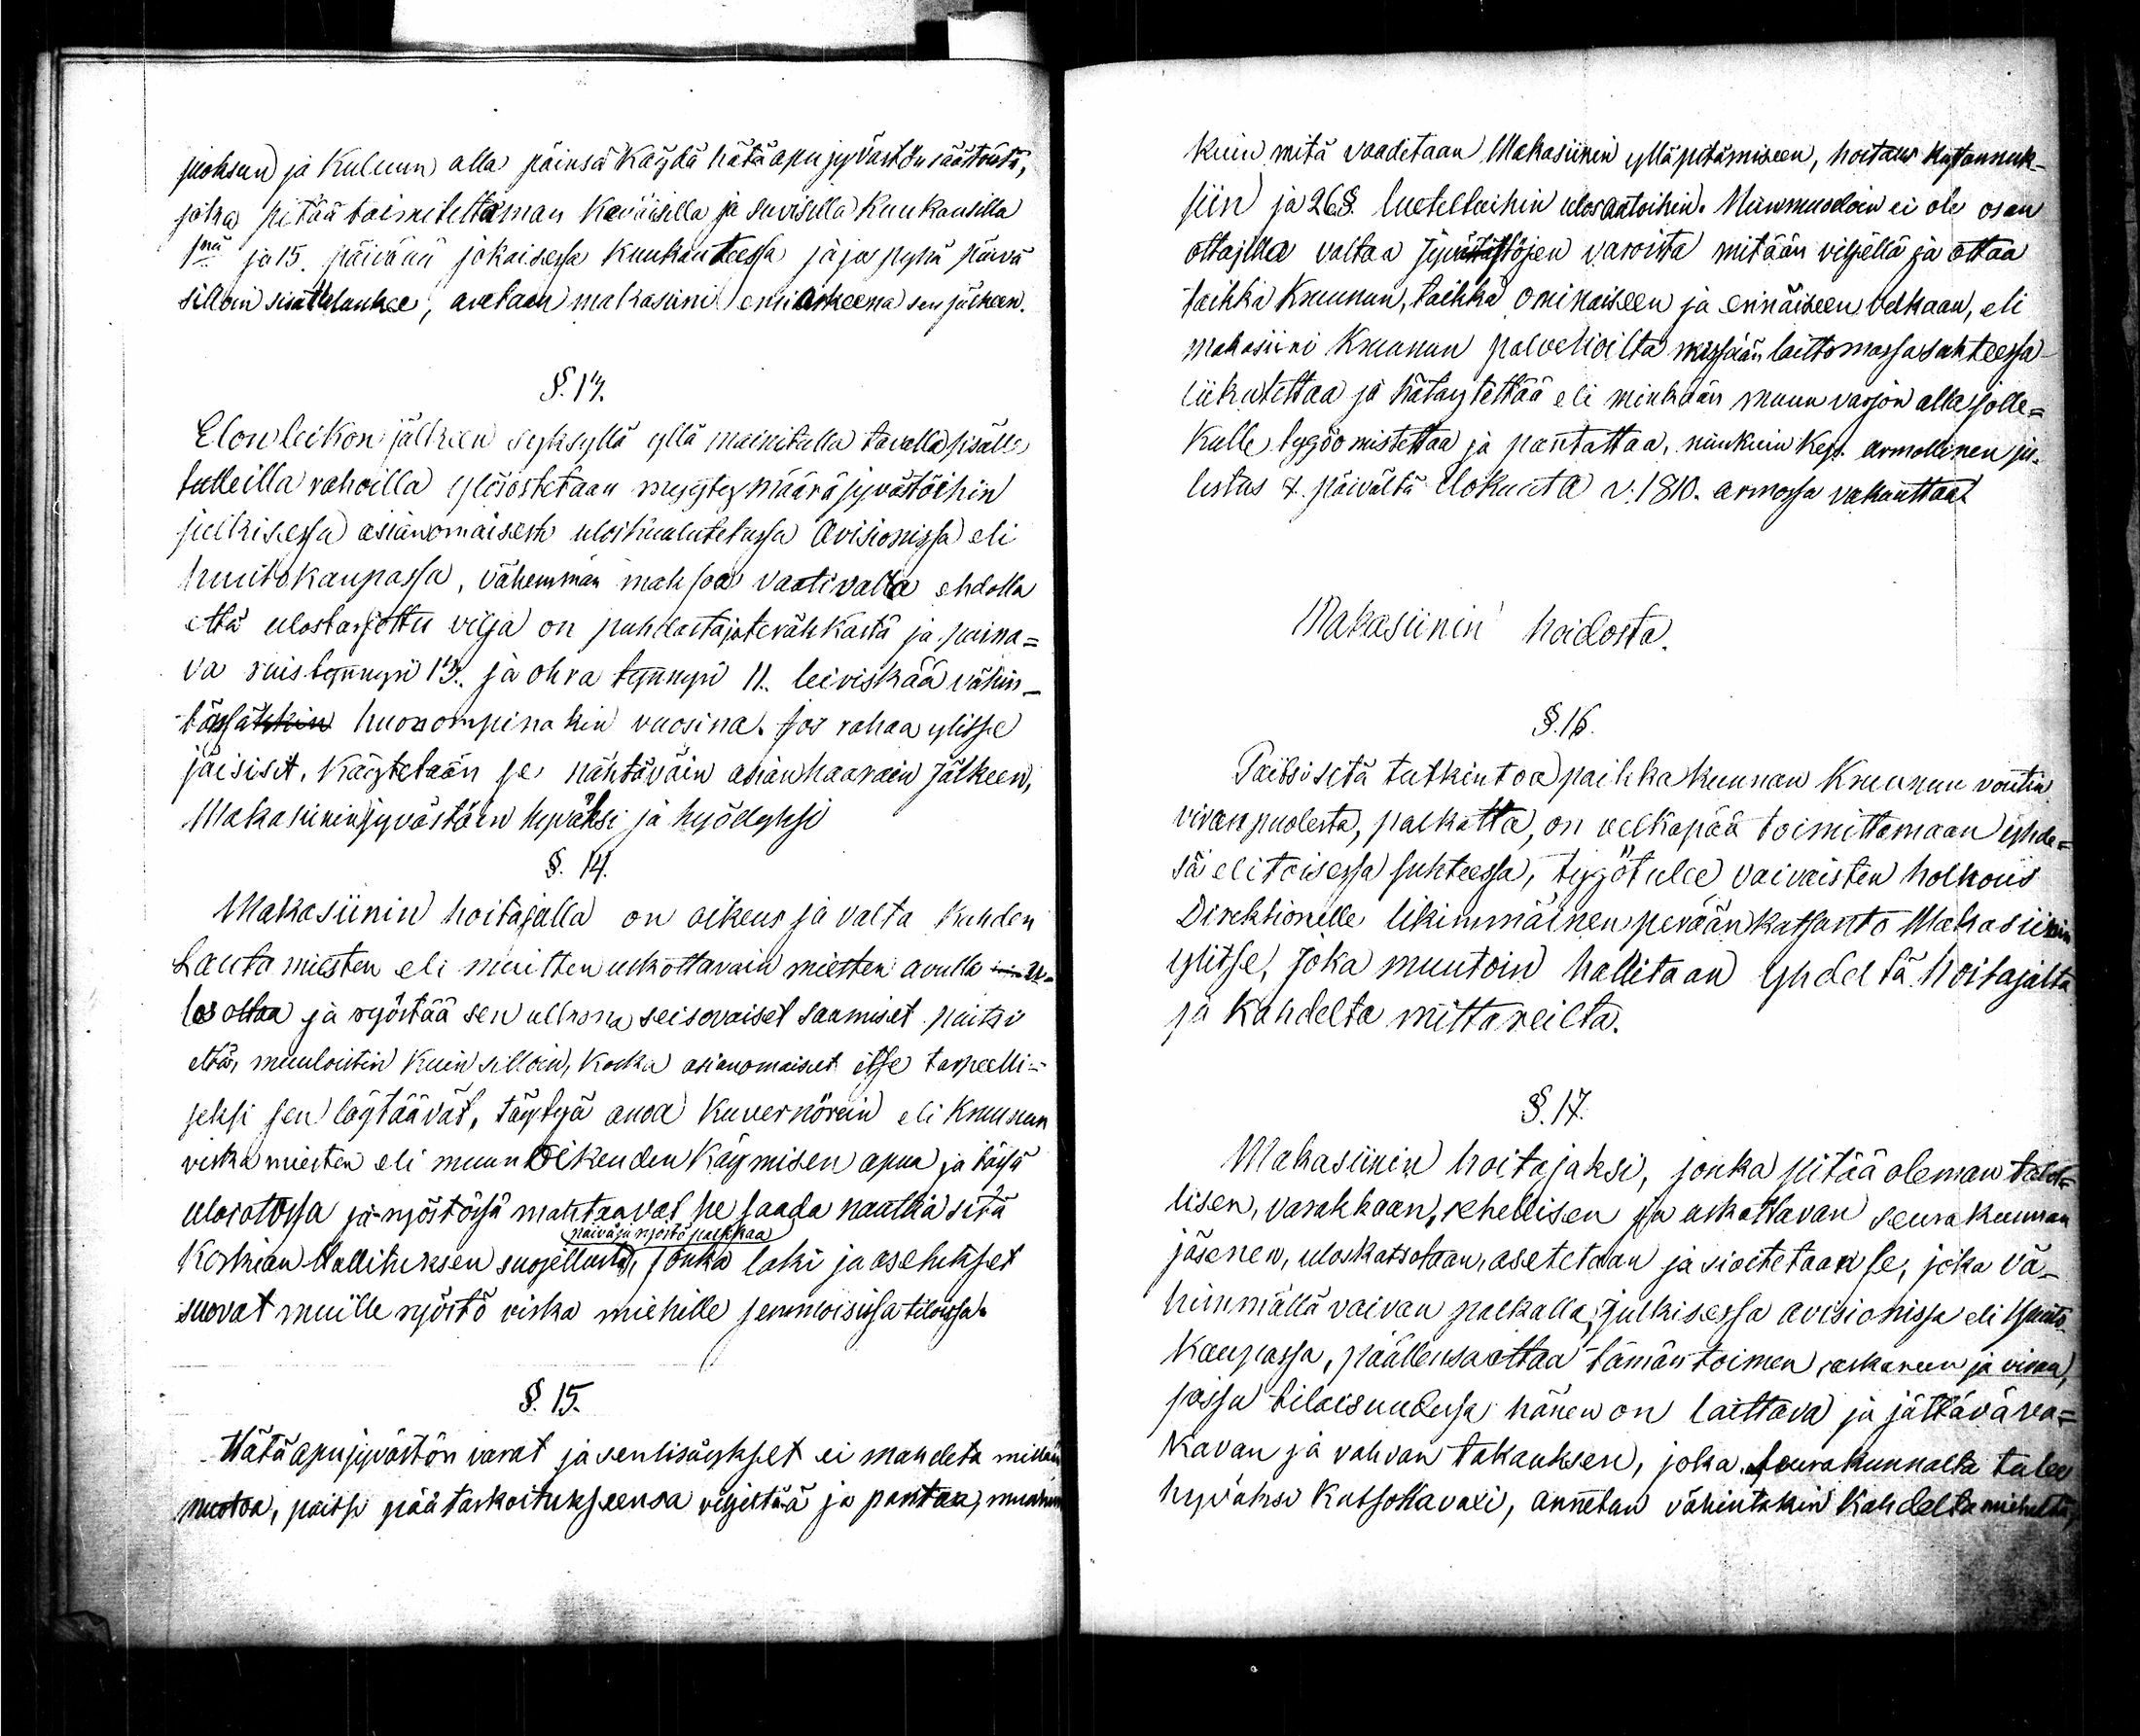 juoksun ja kuluun alla päinsä käydä hätäapu jyvästön säästöstä,
joka pitää toimitettaman keväisellä ja suvisella kuukausilla
1nä ja 15. päivänä jokaisessa kuukauteessa ja jos pyhä päivä
silloin sisälle lankee, avetaan makasiini ensi arkeema sen jälkeen.
§. 13.
Elon leikon jälkeen syksyllä yllä mainitulla tavalla sisälle
tulleilla rahoilla ylösostetaan myyty määrä jyvästöihin
julkisessa asianomaisesti uloskuulutetussa Avisionissa eli
huutokaupassa, vähemmän maksoa vaativalta ehdolla
että ulostarjottu vilja on puhdasta jatevähkästä ja paina=
va ruis tynnyri 13. ja ohra tynnyri 11. leiviskää vähin-
tässäkin huonompina kin vuosina. Jos rahaa ylitse
jäisisit, käytetään se nähtäväin asianhaarain jälkeen,
Makasiinin jyvästöin hyväksi ja hyödyksi
§. 14.
Makasiinin hoitajalla on oikeus ja valta kahden
Lautamiesten eli muitten uskottavain miesten avulla u-
los ottaa ja ryöstää sen ulkona seisovaiset saamiset paitsi
että, muuloinkin kuin silloin, koska asianomaiset itse tarpeelli=
seksi sen löytäävät, täytyä anoa Kuvernörein eli Kruunun
viska miesten eli muun oikeuden käymisen apua ja tässä
ulosotossa ja ryöstössä mahtaavat he saada nauttia sitä
päivä ja ryöstö palkkaa
Korkian Hallituksen suojellusta, jonka laki ja asetukset
suovat muille ryöstö viska miehille semmoisissa tiloissa.
§. 15.
Hätäapujyvästön varat ja sen lisäykset ei mahdeta millän
muotoa, paitse päätarkoitukseensa viljeltää ja pantaa, muuhun
kuin mitä vaaditaan Makasiinin ylläpitämiseen, hoitaus kustannuk-
siin ja 26 §. lueteltuihin ulosantoihin. Niinmuodoin ei ole osan
ottajilla valtaa Jyvästöjen varoista mitään viljellä ja ottaa
taikka Kruunun, taikka ominaiseen ja erinäiseen velkaan, eli
makasiini Kruunun palvelioilta missään laittomassa suhteessa
liikutettaa ja hätäytettää eli minkään muun varjon alla jolle=
kulle tygöomistettaa ja pantattaa, niinkuin Keis. armollinen ju-
listus 4. päivältä Elokuuta v. 1810. armossa vakauttaa.
Makasiinin hoidosta.
§. 16.
Paitsi sitä tutkintoa paikkakunnan Kruunun voutin
viran puolesta, palkatta, on velkapää toimittamaan yhde=
sä eli toisessa suhteessa, tygötulee vaivaisten holhous
Direktionille likimmäinen perään katsanto Makasiinin
ylitse, joka muutoin hallitaan yhdeltä hoitajalta
ja kahdelta mittareilta.
§. 17.
Makasiinin hoitajaksi, jonka pitää oleman talol=
lisen, varakkaan, rehellisen ja uskottavan seurakunnan
jäsenen, uloskatsotaan, asetetaan ja sioitetaan se, joka vä-
himmällä vaivan palkalla, julkisessa avisionissa eli huuto
kaupassa, päällensä ottaa tämän toimen, askareen ja viran,
jossa tilaisuudessa hänen on laittava ja jättävä va=
kavan ja vahvan takauksen, joka seurakunnalta tulee
hyväksi katsottavaxi, annetan vähintäkin kahdelta mieheltä,